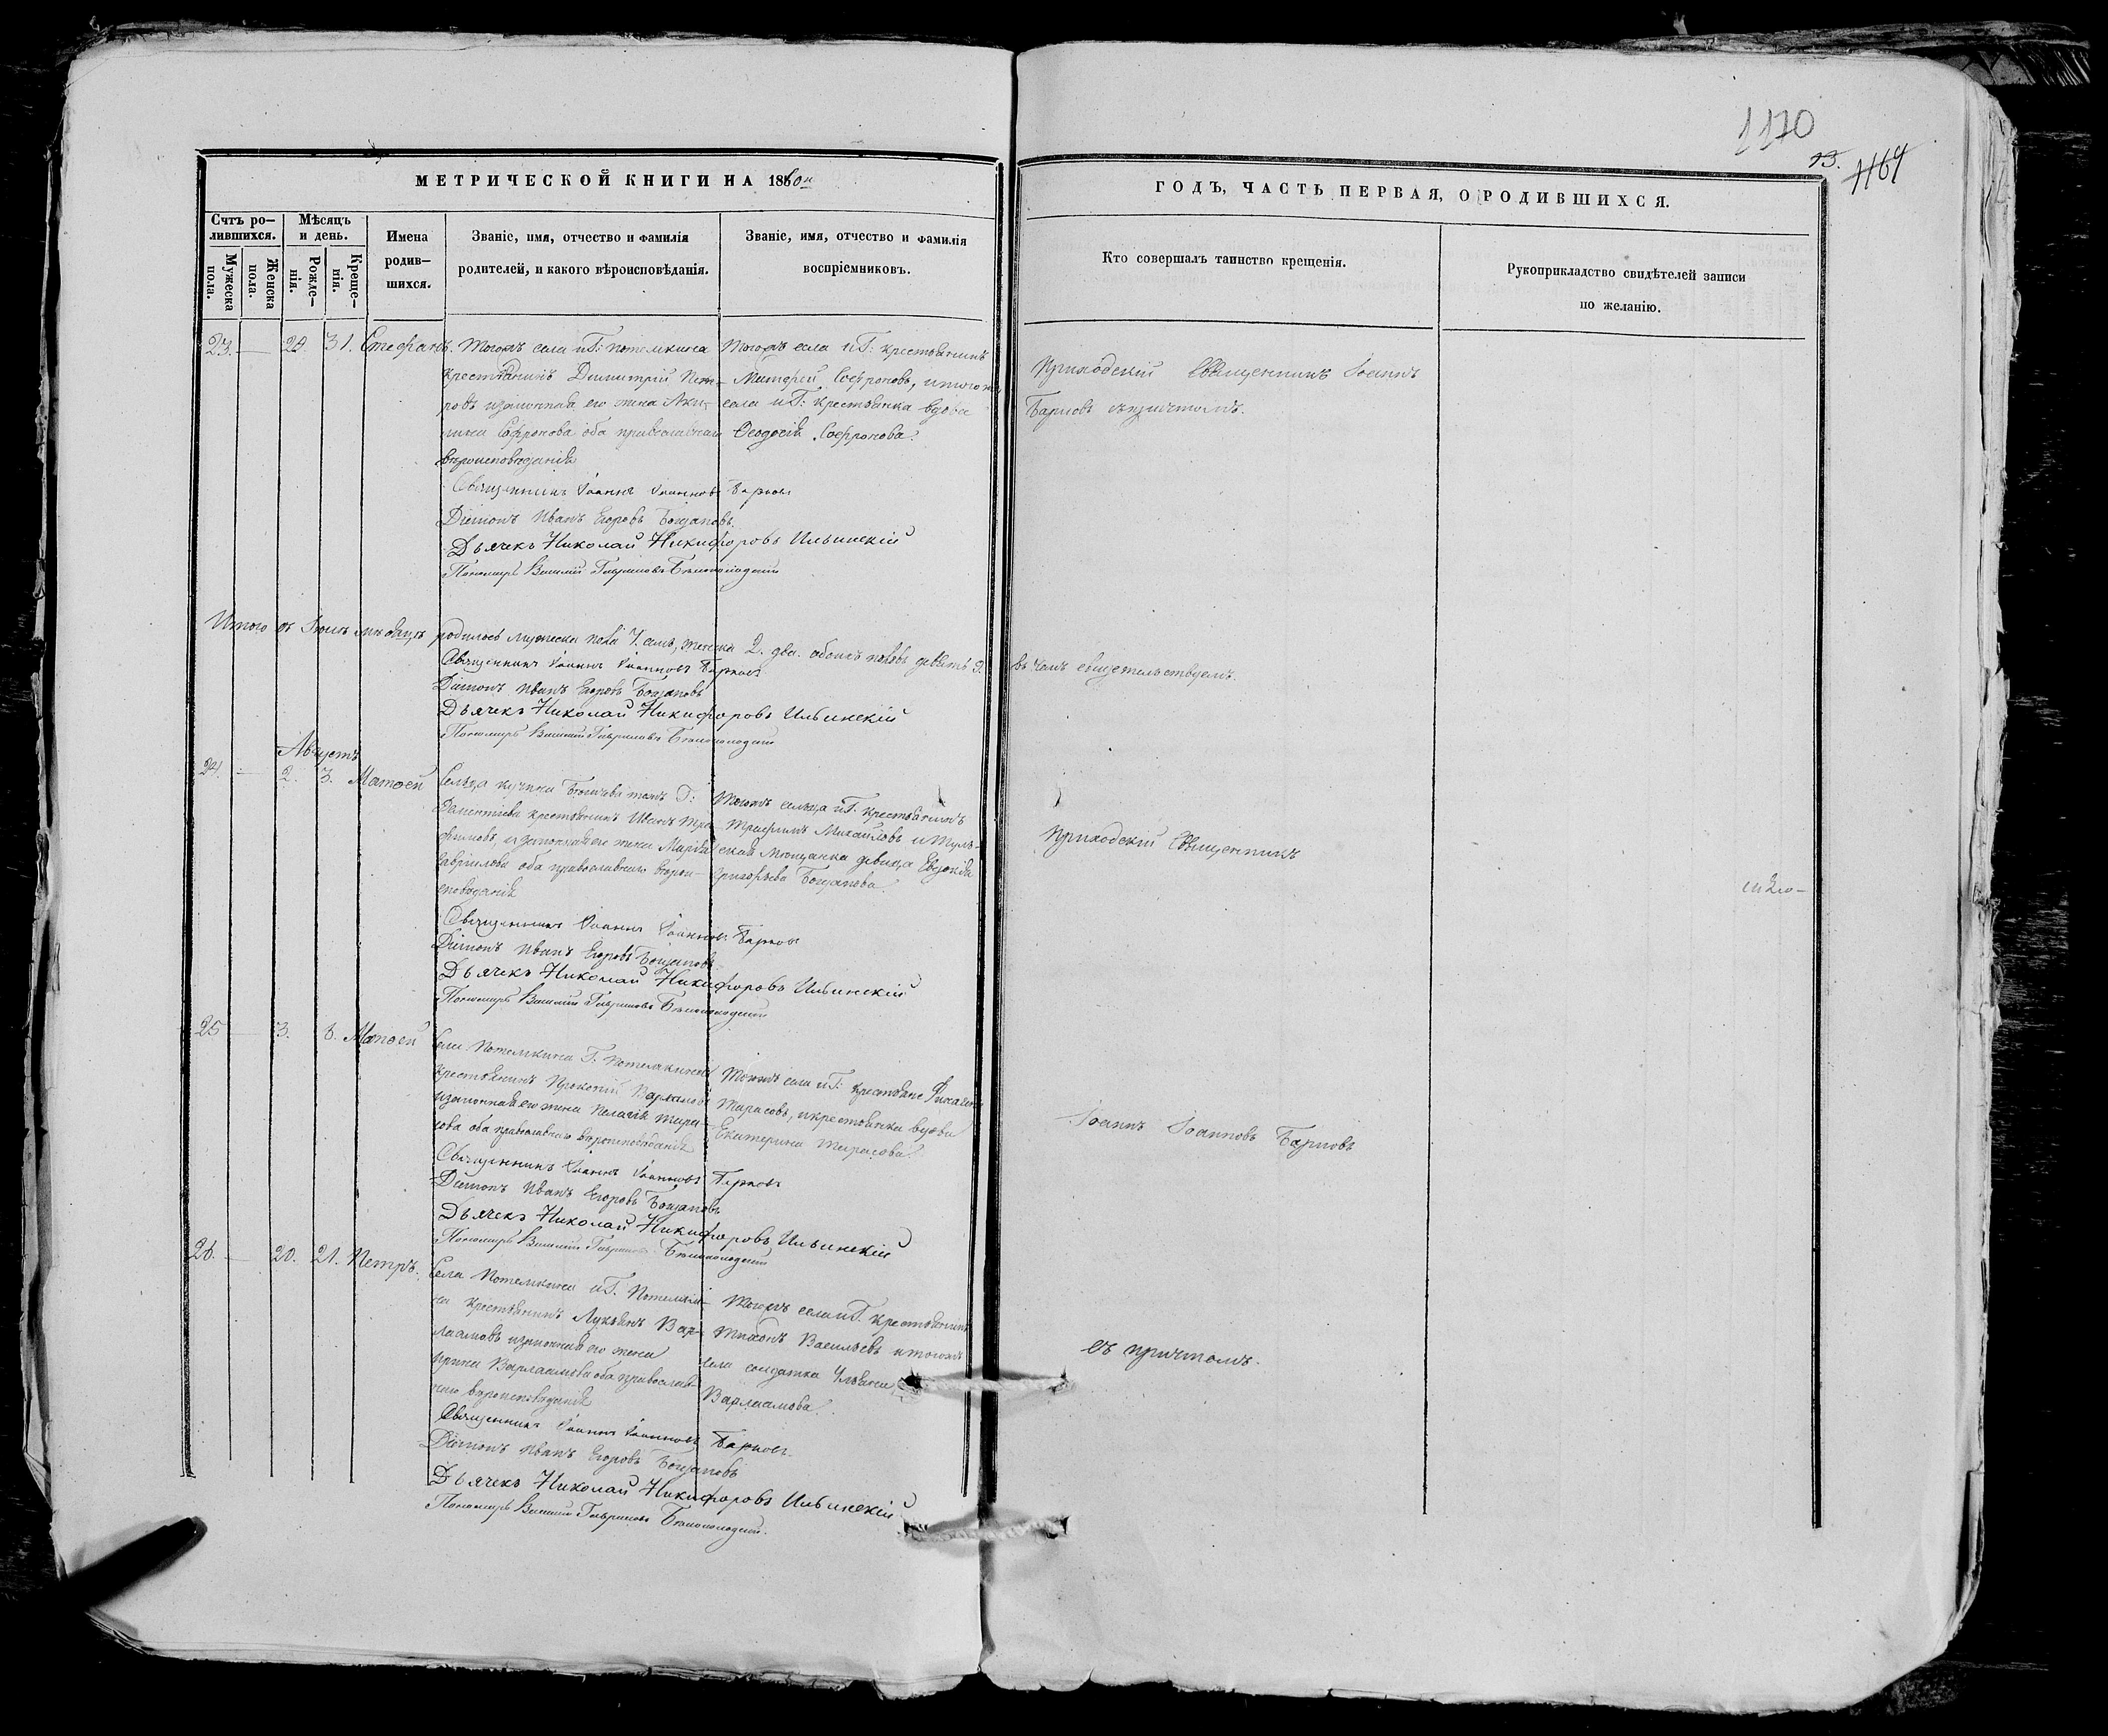 1170
13.
1169
МЕТРИЧЕСКОЙ КНИГИ НА 1860й
ГОДЪ, ЧАСТЬ ПЕРВАЯ, О РОДИВШИХСЯ.
Счтъ ро-
лившихся.
Мужеска
пола.
Женска
пола.
Мѣсяцъ
и день.
Рожде-
нія.
Креще-
нія.
Имена
родив-
шихся.
Званіе, имя, отчество и фамилія
родителей, и какого вѣроисповѣданія.
Званіе, имя, отчество и фамилія
воспріемниковъ.
Кто совершалъ таинство крещенія.
Рукоприкладство свидѣтелей записи
по желанію.
23. — 31. Стефанъ.
Тогожъ села и Г: Потемкина
крестьянинъ Димитрій Пет-
ровъ изаконная его жена Аку-
лина Софронова оба православнаго
вѣроисповѣданія
Тогожъ села и Г: крестьянинъ
Софроновъ, итогоже
села и Г: крестьянка вдова
Ѳеодосія Софронова.
Приходскій Священникъ Іоаннъ
Барковъ съпричтомъ.
Священникъ Іоаннъ Іоанновъ Барковъ
Діаконъ Иванъ Егоровъ Богдановъ
Дьячекъ Николай Никифоровъ Ильинскій
Пономарь Василій Гавриловъ
Итого въ Іюлѣ мѣсяцѣ родилось мужеска пола 7. семь, женска 2. два. обоихъ половъ девять 9. въ чемъ свидетельствуемъ.
Священникъ Іоаннъ Іоанновъ Барковъ
Діаконъ Иванъ Егоровъ Богдановъ
Дьячекъ Николай Никифоровъ Ильинскій
Пономарь Василій Гавриловъ
Августъ
24. — 2. 3. Матѳей
Сельца Г:
крестьянинъ Иванъ Тро-
фимовъ, изаконная его жена Марѳа
Гаврилова оба православнаго вѣрои-
споведанія
Тогожъ сельца и Г. крестьянинъ
Трофимъ Михайловъ и Туль-
ская мещанка девица Евдокія
Григорьева Богданова
Приходскій Священникъ
Священникъ Іоаннъ Іоанновъ Барковъ
Діаконъ Иванъ Егоровъ Богдановъ
Дьячекъ Николай Никифоровъ Ильинскій
Пономарь Василій Гавриловъ
25 — 3. Матѳей
Села Потемкина Г. Потемкиной
крестьянинъ Прокопій
изаконная его жена Пелагія Тара-
сова оба православнаго вѣроисповѣданія
Тогожъ села и Г: крестьяне
Тарасовъ, икрестьянка вдова
Екатерина Тарасова.
Іоаннъ Іоанновъ Барковъ
Священникъ Іоаннъ Іоанновъ Барковъ
Діаконъ Иванъ Егоровъ Богдановъ
Дьячекъ Николай Никифоровъ Ильинскій
Пономарь Василій Гавриловъ
26. — 20. 21. Петръ.
Села Потемкина и Г. Потемки-
на крестьянинъ Лукьянъ Вар-
лаамовъ изаконная его жена
Ирина Варлаамова оба православ-
наго вѣроисповѣданія
Тогожъ села и Г. крестьянинъ
Тихонъ Васильевъ итогожъ
села солдатка Ульяна
Варлаамова.
съ причтомъ.
Священникъ Іоаннъ Іоанновъ Барковъ
Діаконъ Иванъ Егоровъ Богдановъ
Дьячекъ Николай Никифоровъ Ильинскій
Пономарь Василій Гавриловъ